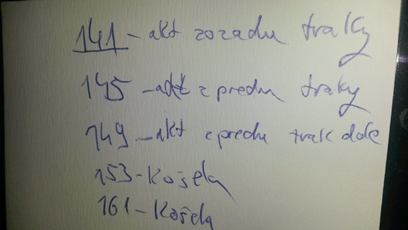 141 - akt zozadu traky
145 - akt z predu traky
149 - akt z predu trak dole
153 - Košela
161 - Košela